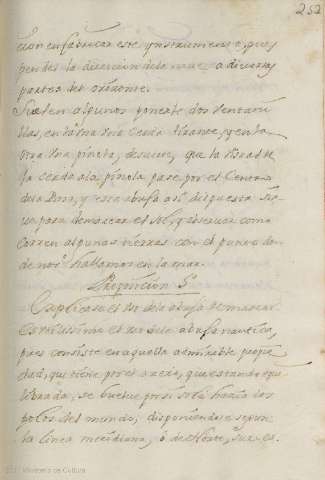 252
cion en fabricar este ynstrumento, que es
pende la direccion de la nave a diversas
partes del orizonte.
Suelen algunos ponerle dos ventani-
llas, en la una una Cerda tirante, y en la
otra una pinola, de suerte, que la visual de
la cerda a la pinola pase por el Centro
de la Rosa, y esta abuja asi dispuesta sir-
ve para demarcar el Sol, y observar como
corren algunas tierras con el punto don-
de nos hallamos en la mar.
Proposicion 5ª
Explicase el uso de la abuja de marear
Es utilissimo el uso de la abuja nautica,
pues consiste en aquella admirable propie-
dad, que tiene por el azero, que estando equi-
librada, se buelve por si sola hazia los
polos del mundo, disponiendose segun
la linea meridiana, ò de Norte, Sur. es.
Ministerio de Cultura